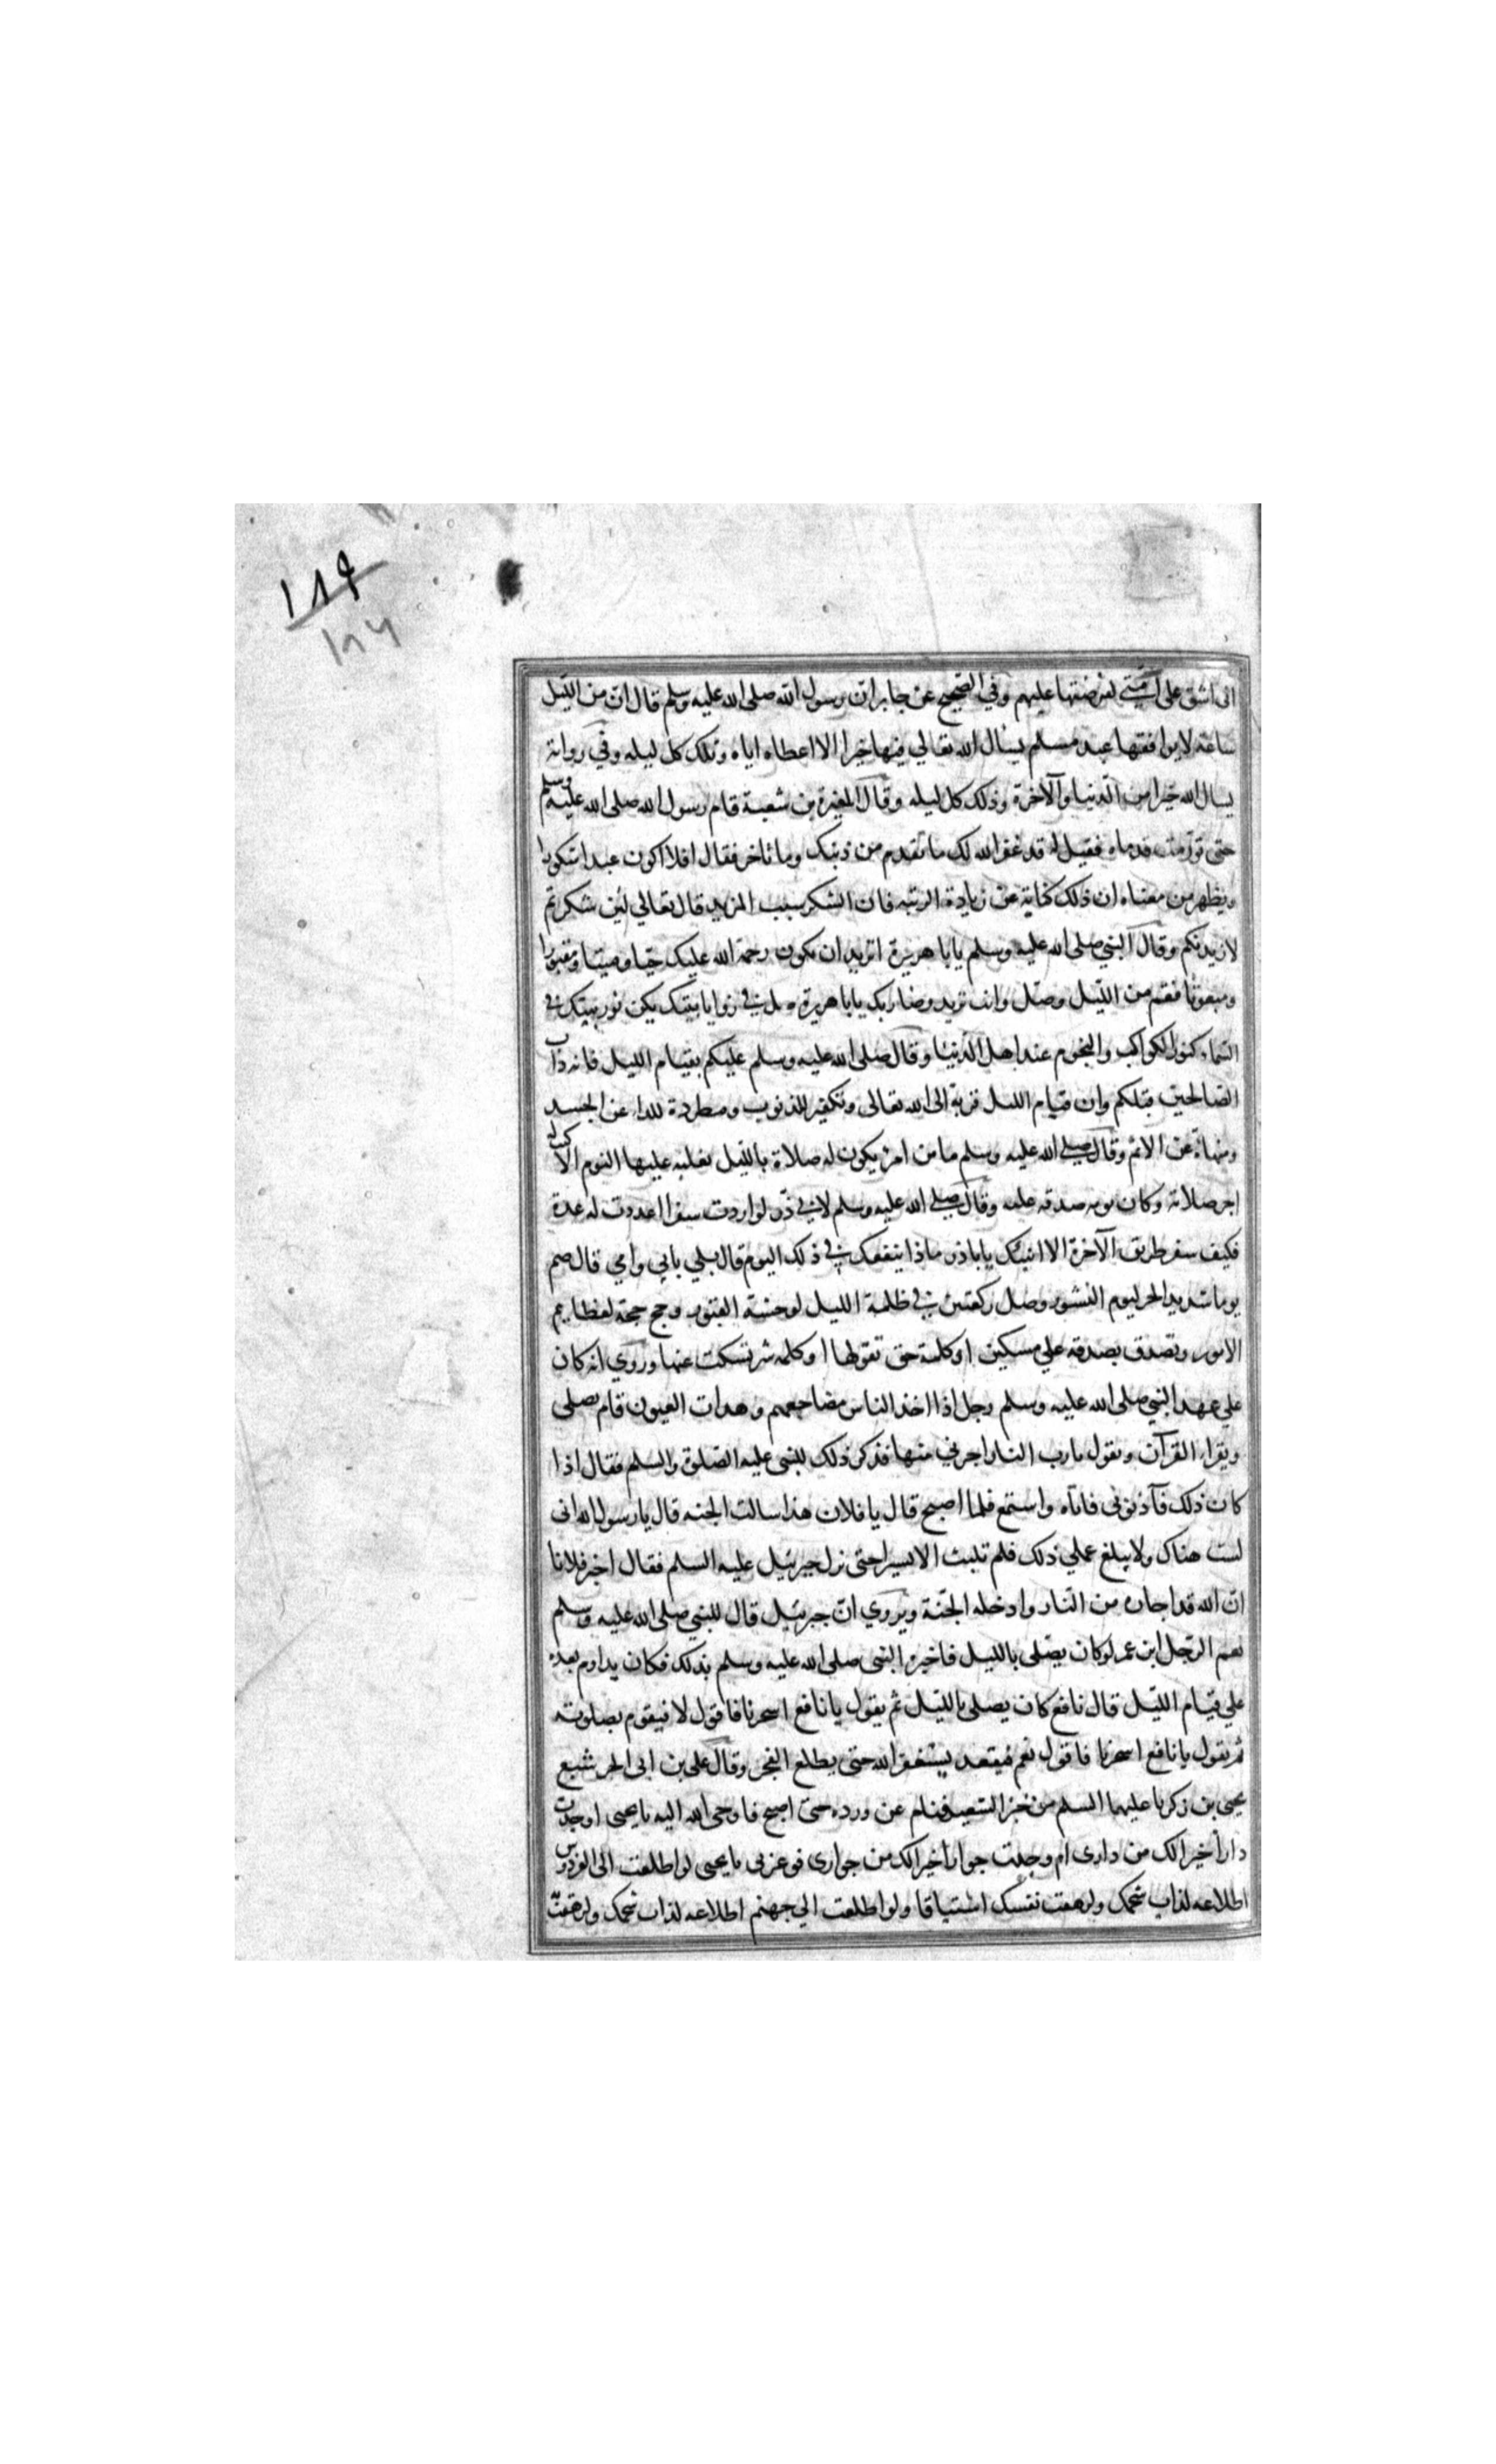 ١٨٩
١٨٦
اني اشق على امتي لفرضتها عليهم وفي الصحيح عن جابر ان رسول الله صلى الله عليه وسلم قال ان من الليل
ساعة لا يوافقها عبد مسلم يسال الله تعالي فيها خيرا الا اعطاه اياه وذلك كل ليله وفي رواية
يسال الله خيرا من الدنيا والآخرة وذلك كل ليله وقال المغيرة بن شعبة قام رسول الله صلى الله عليه وسلم
حتى تورمت قدماه فقيل له قد غفر الله لك ما تقدم من ذنبك وما تاخر فقال افلا اكون عبدا شكورا
ويظهر من معناه ان ذلك كناية عن زيادة الرتبه فان الشكر سبب المزيد قال تعالي لئن شكرتم
لازيدنكم وقال النبي صلى الله عليه وسلم يابا هريرة اتريد ان تكون رحمة الله عليك حيا وميتا ومقبورا
ومبعوثا فقم من الليل وصل وانت تريد رضا ربك يابا هريرة صل في زوايا بيتك يكن نور بيتك في
السماء كنور الكواكب والنجوم عند اهل الدنيا وقال صلى الله عليه وسلم عليكم بقيام الليل فانه داب
الصالحين قبلكم وان قيام الليل قربة الى الله تعالى وتكفير للذنوب ومطردة للداء عن الجسد
ومنهاة عن الاثم وقال صلي الله عليه وسلم ما من امرئ يكون له صلاة بالليل يغلبه عليها النوم الا كتب له
اجر صلاته وكان نومه صدقه عليه وقال صلي الله عليه وسلم لابي ذر لو اردت سفرا اعددت له عدة
فكيف سفر طريق الآخرة الا انبئك يابا ذر ماذا ينفعك في ذلك اليوم قال بلي بابي وامي قال صم
يوما شديد الحر ليوم النشور وصل ركعتين في ظلمة الليل لوحشة القبور وحج حجة لعظايم
الامور وتصدق بصدقه علي مسكين او كلمة حق تقولها او كلمه شر تسكت عنها وروي انه كان
علي عهد النبي صلى الله عليه وسلم رجل اذا اخذ الناس مضاجعهم وهدات العيون قام يصلي
ويقراء القرآن ويقول يا رب النار اجرني منها فذكر ذلك للنبي عليه الصلوة والسلم فقال اذا
كان ذلك فآذنوني فاتاه واستمع فلما اصبح قال يا فلان هذا سالت الجنه قال يا رسول الله اني
لست هناك ولا يبلغ عملي ذلك فلم تلبث الا يسيرا حتى نزل جبرئيل عليه السلم فقال اخبر فلانا
ان الله قد اجاره من النار وادخله الجنة ويروي ان جبرئيل قال للنبي صلى الله عليه وسلم
نعم الرجل ابن عمر لو كان يصلي بالليل فاخبره النبي صلى الله عليه وسلم بذلك فكان يداوم بعده
علي قيام الليل قال نافع كان يصلي بالليل ثم يقول يا نافع اسحرنا فاقول لا فيقوم بصلوته
ثم يقول يا نافع اسحرنا فاقول نعم فيقعد يستغفر الله حتى يطلع الفجر وقال علي بن ابي الحر شبع
يحيى بن زكريا عليهما السلم من خبز الشعير فنام عن ورده حتى اصبح فاوحى الله اليه يا يحيى اوجدت
دارا خيرا لك من داري ام وجدت جوارا خيرا لك من جواري فوعزتي يا يحيى لو اطلعت الى الفردوس
اطلاعه لذاب شحمك ولزهقت نفسك اشتياقا ولو اطلعت الي جهنم اطلاعه لذاب شحمك ولزهقت